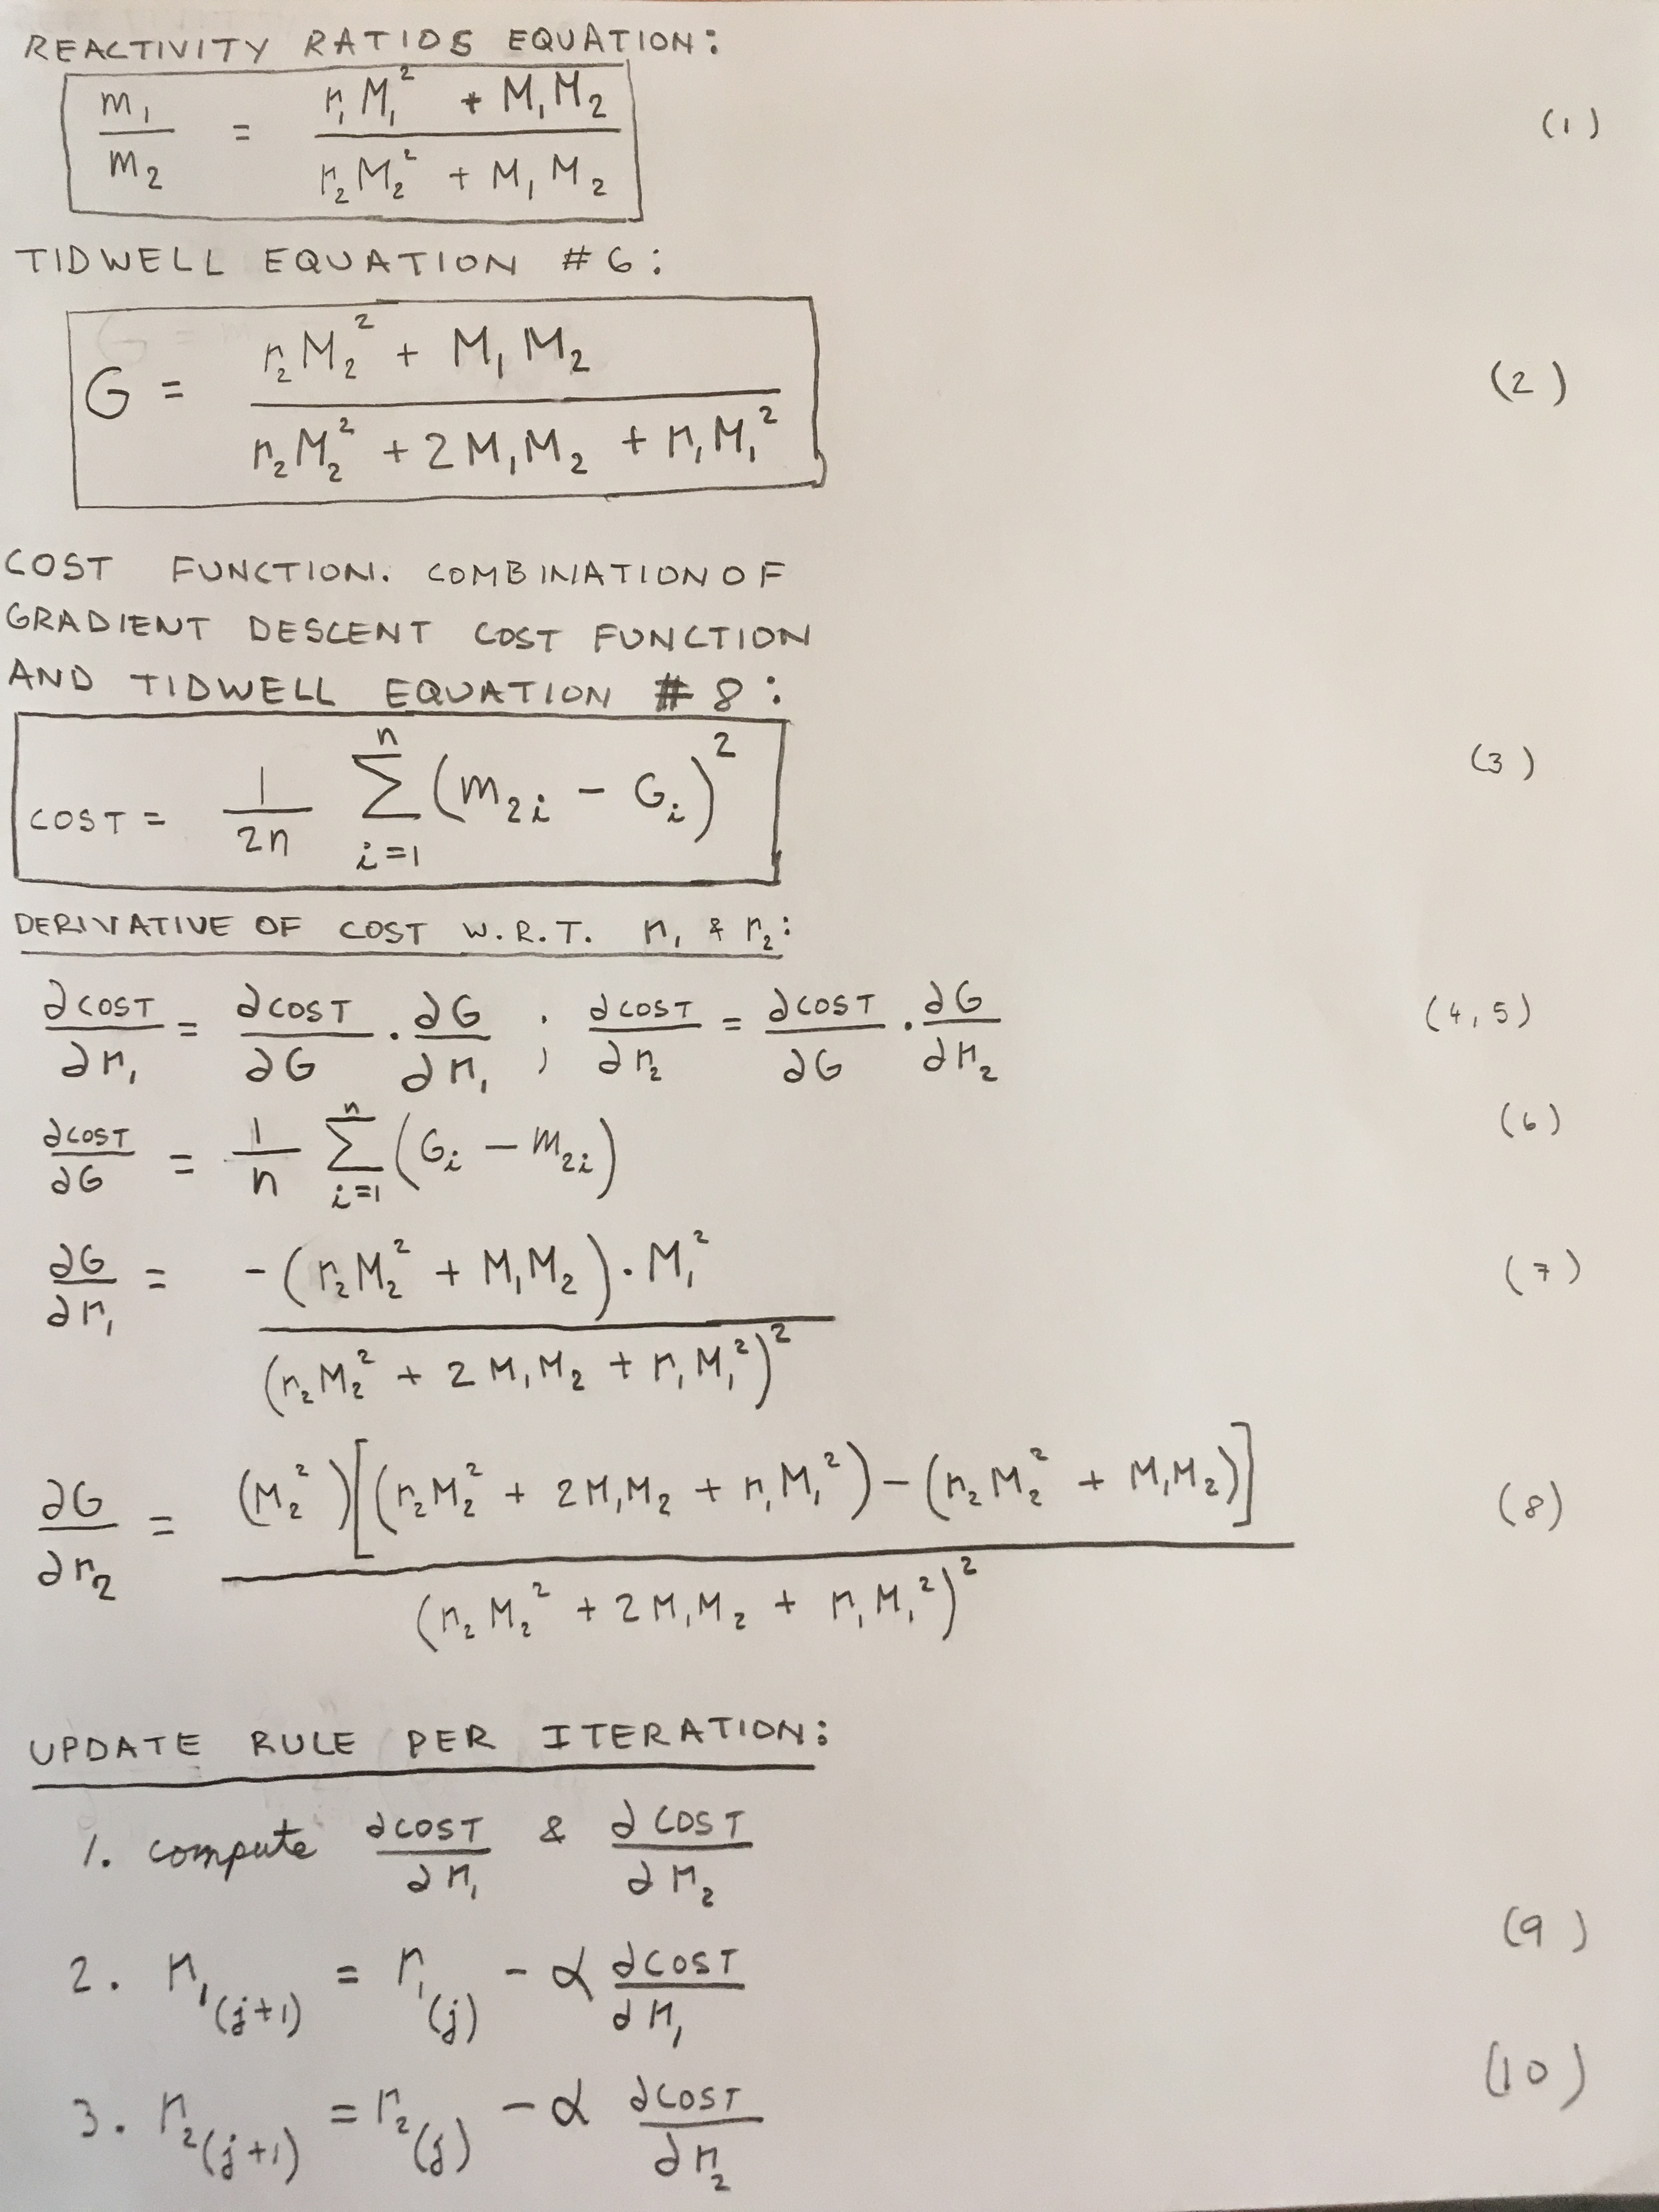 REACTIVITY RATIOS EQUATION:
m₁/m₂ = (r₁M₁² + M₁M₂)/(r₂M₂² + M₁M₂) (1)
TIDWELL EQUATION #6:
G = (r₂M₂² + M₁M₂)/(r₂M₂² + 2M₁M₂ + r₁M₁²) (2)
COST FUNCTION. COMBINATION OF
GRADIENT DESCENT COST FUNCTION
AND TIDWELL EQUATION #8:
COST = 1/2n ∑ᵢ₌₁ⁿ (m₂ᵢ - Gᵢ)² (3)
DERIVATIVE OF COST W.R.T. r₁ & r₂:
∂COST/∂r₁ = ∂COST/∂G · ∂G/∂r₁ ; ∂COST/∂r₂ = ∂COST/∂G · ∂G/∂r₂ (4,5)
∂COST/∂G = 1/n ∑ᵢ₌₁ⁿ (Gᵢ - m₂ᵢ) (6)
∂G/∂r₁ = -(r₂M₂² + M₁M₂)·M₁²/(r₂M₂² + 2M₁M₂ + r₁M₁²)² (7)
∂G/∂r₂ = (M₂²)[(r₂M₂² + 2M₁M₂ + r₁M₁²) - (r₂M₂² + M₁M₂)]/(r₂M₂² + 2M₁M₂ + r₁M₁²)² (8)
UPDATE RULE PER ITERATION:
1. compute ∂COST/∂r₁ & ∂COST/∂r₂
2. r₁(j+1) = r₁(j) - α ∂COST/∂r₁ (9)
3. r₂(j+1) = r₂(j) - α ∂COST/∂r₂ (10)